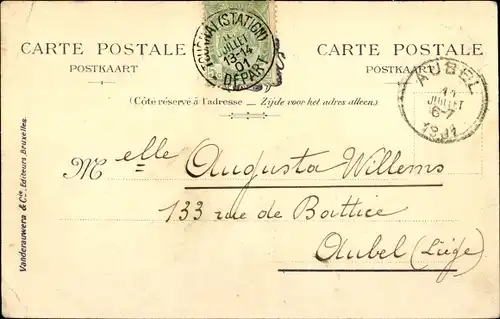 CARTE POSTALE
POSTKAART
TOURNAI (STATION)
JUILLET
13-14
01
DÉPART
CARTE POSTALE
POSTKAART
AUBEL
11
JUILLET
6-7
1901
(Côté réservé à l'adresse _ Zijde voor het adres alleen)
Melle Augusta Willems
133 rue de Battice
Aubel (Liège)
Vanderauwera & Cie, Editeurs Bruxelles.